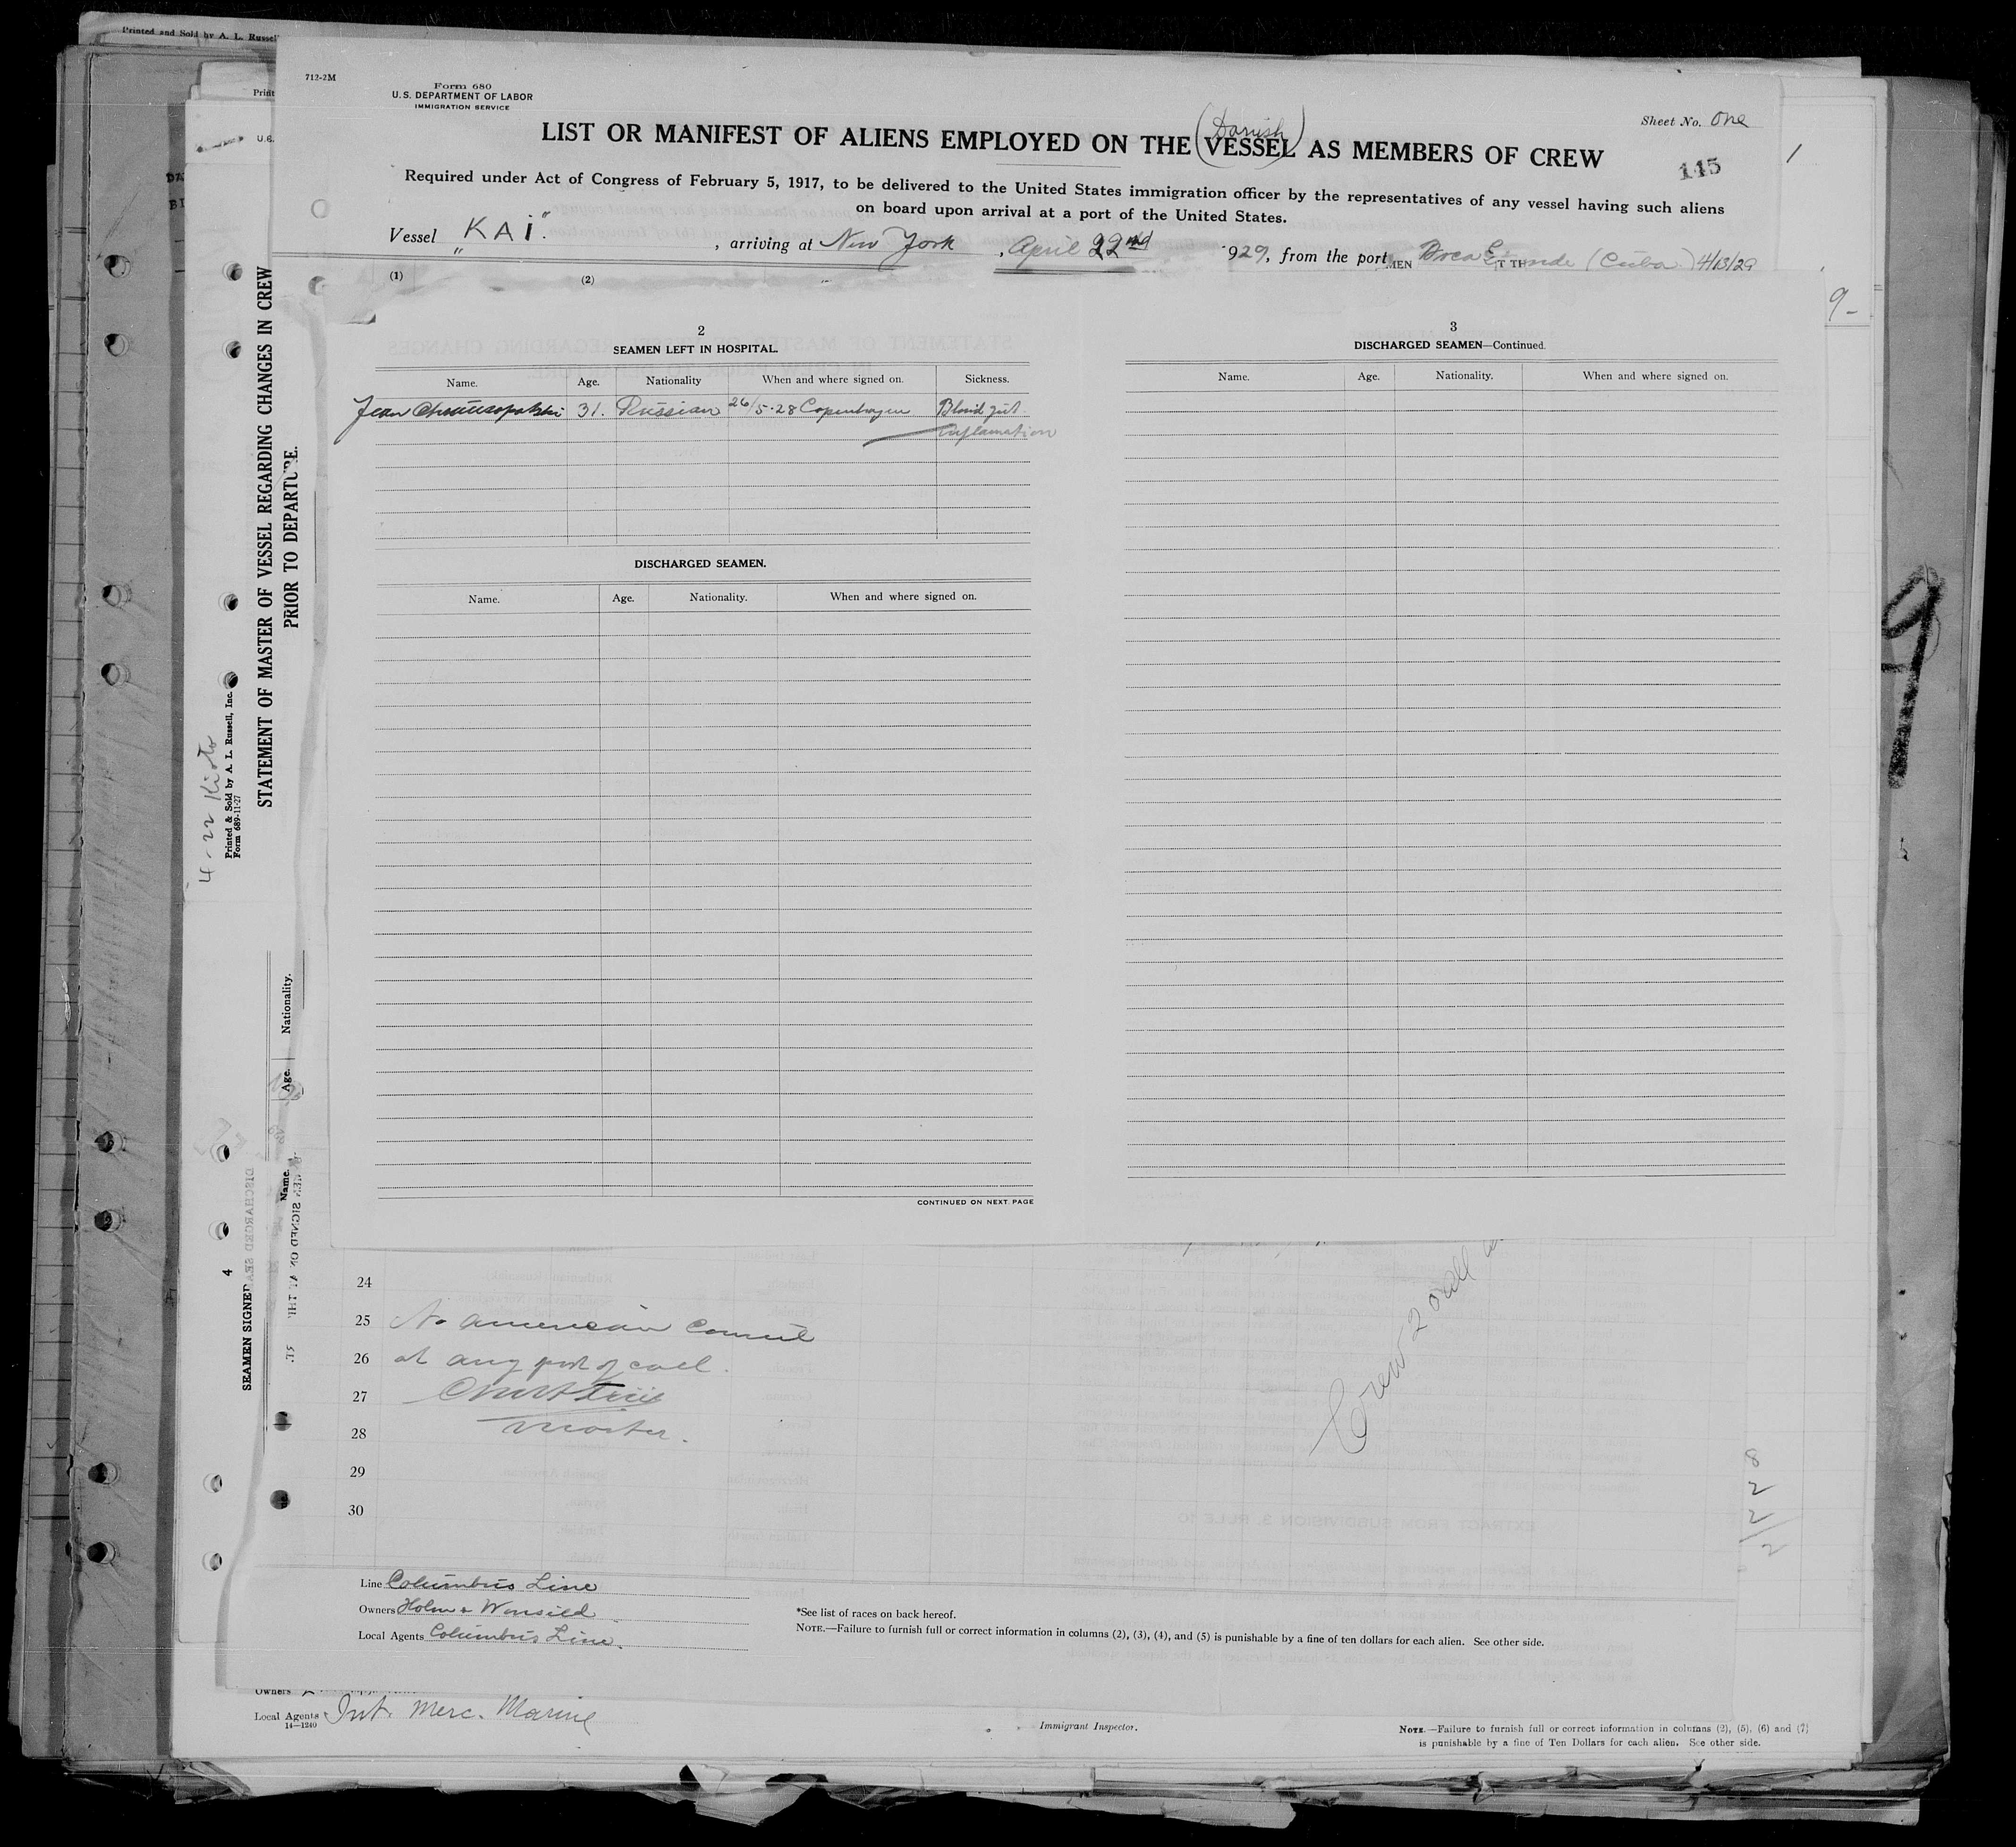 Printed and Sold by A. L. Russel
712-2M
Form 680
U.S. DEPARTMENT OF LABOR
IMMIGRATION SERVICE
Print
U.S.
Sheet No. One
(Danish)
LIST OR MANIFEST OF ALIENS EMPLOYED ON THE VESSEL AS MEMBERS OF CREW
145
1
Required under Act of Congress of February 5, 1917, to be delivered to the United States immigration officer by the representatives of any vessel having such aliens
on board upon arrival at a port of the United States.
Vessel "KAI". , arriving at New York , April 22nd 929, from the port (Cuba) 4/13/29
MEN
(1) (2)
9-
2
SEAMEN LEFT IN HOSPITAL.
Name. Age. Nationality When and where signed on. Sickness.
Jean 31. Russian 26/5-28 Copenhagen
Inflamation
DISCHARGED SEAMEN.
Name. Age. Nationality. When and where signed on.
CONTINUED ON NEXT PAGE
3
DISCHARGED SEAMEN—Continued.
Name. Age. Nationality. When and where signed on.
9
4-22 Kioto
Printed & Sold by A. L. Russell, Inc.
Form 689-11-27
STATEMENT OF MASTER OF VESSEL REGARDING CHANGES IN CREW
PRIOR TO DEPARTURE.
Nationality.
Age.
Name.
4
SEAMEN SIGNED
24
25 No american Consul
26 at any port of call.
27
28 Master.
29
30
Crew 2 all
8
2
2
2
Line Columbus Line
Owners Holm & Wonsild
Local Agents Columbus Line.
*See list of races on back hereof.
NOTE.—Failure to furnish full or correct information in columns (2), (3), (4), and (5) is punishable by a fine of ten dollars for each alien. See other side.
Owners
Local Agents Int. Merc. Marine
14—1240
Immigrant Inspector.
NOTE.—Failure to furnish full or correct information in columns (2), (5), (6) and (7)
is punishable by a fine of Ten Dollars for each alien. See other side.